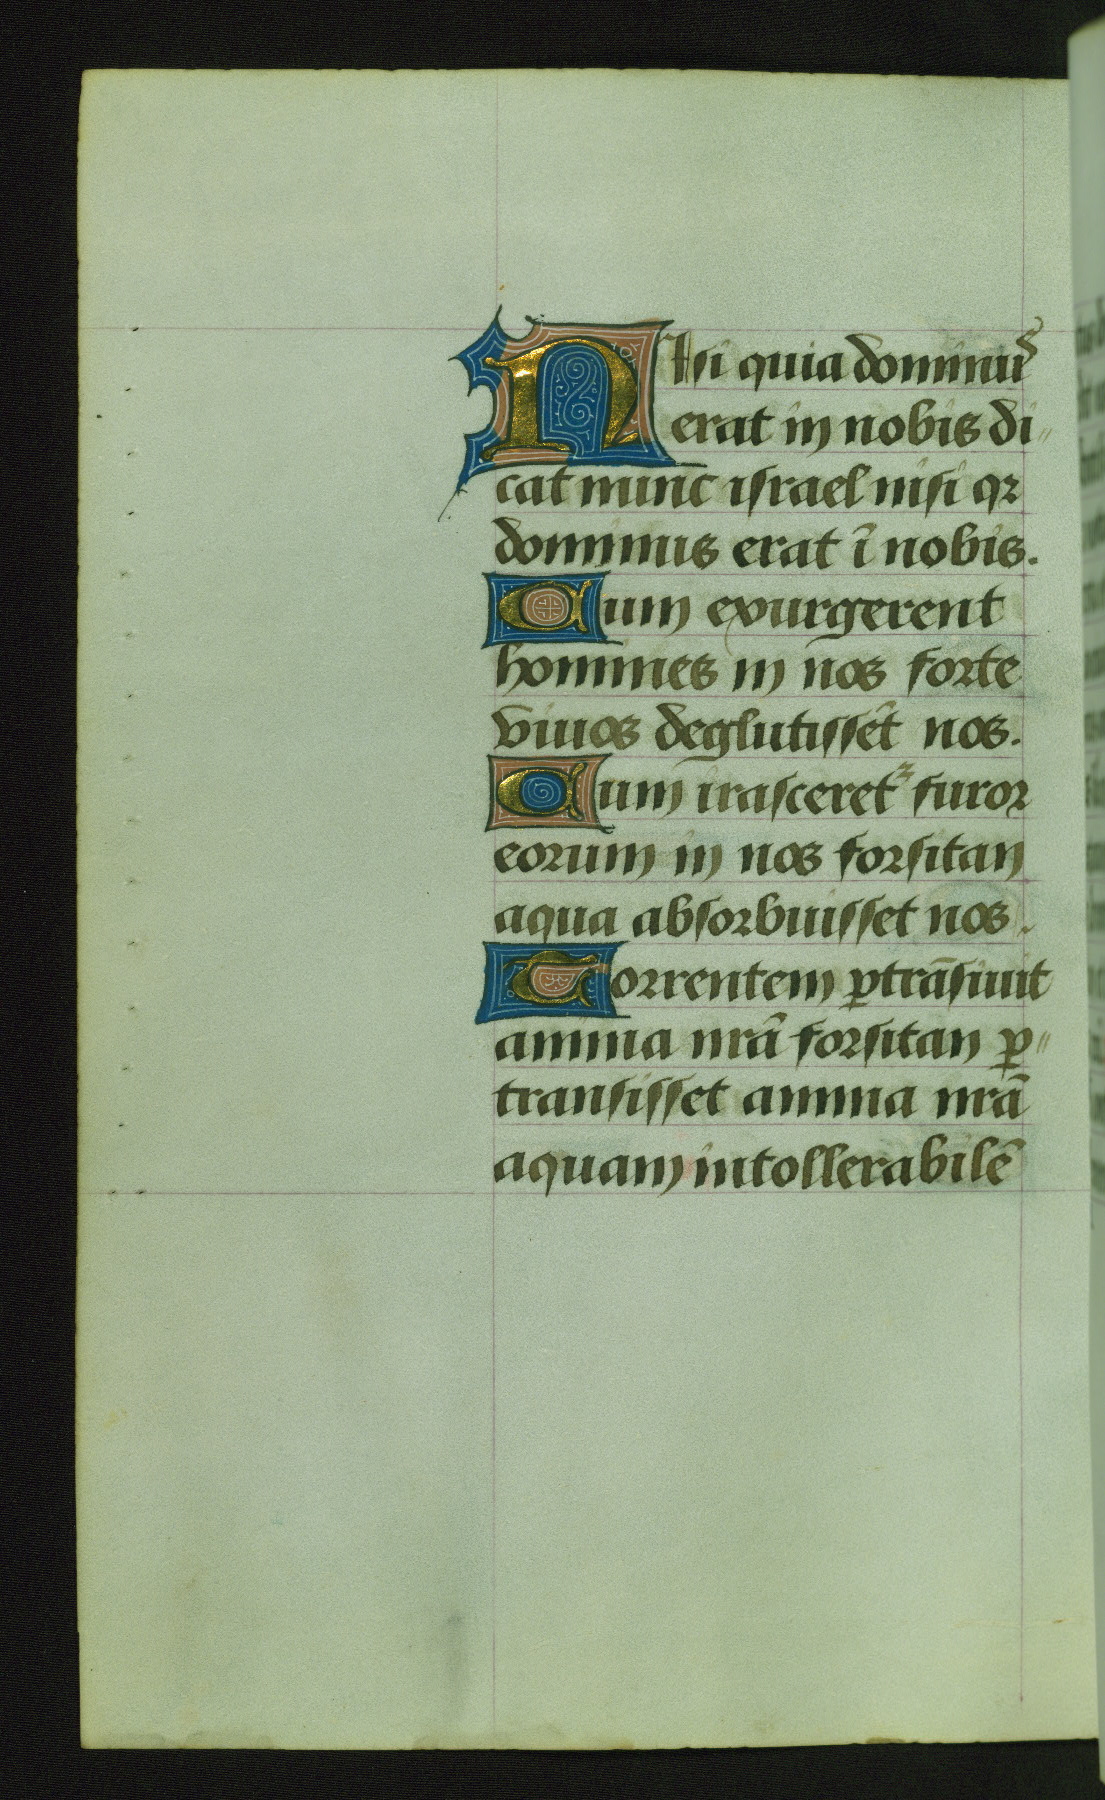 NIsi quia dominus
erat in nobis di〃
cat nunc israel nisi qꝛ
dominus erat ī nobis.
Cum exurgerent
homines in nos forte
viuos deglutissēt nos.
Cum irasceretᷣ furor
eorum in nos forsitan
aqua absorbuisset nos.
Torrentem ꝑtrāsiuit
anima nrā forsitan ꝑ〃
transisset anima nrā
aquam intollerabilē